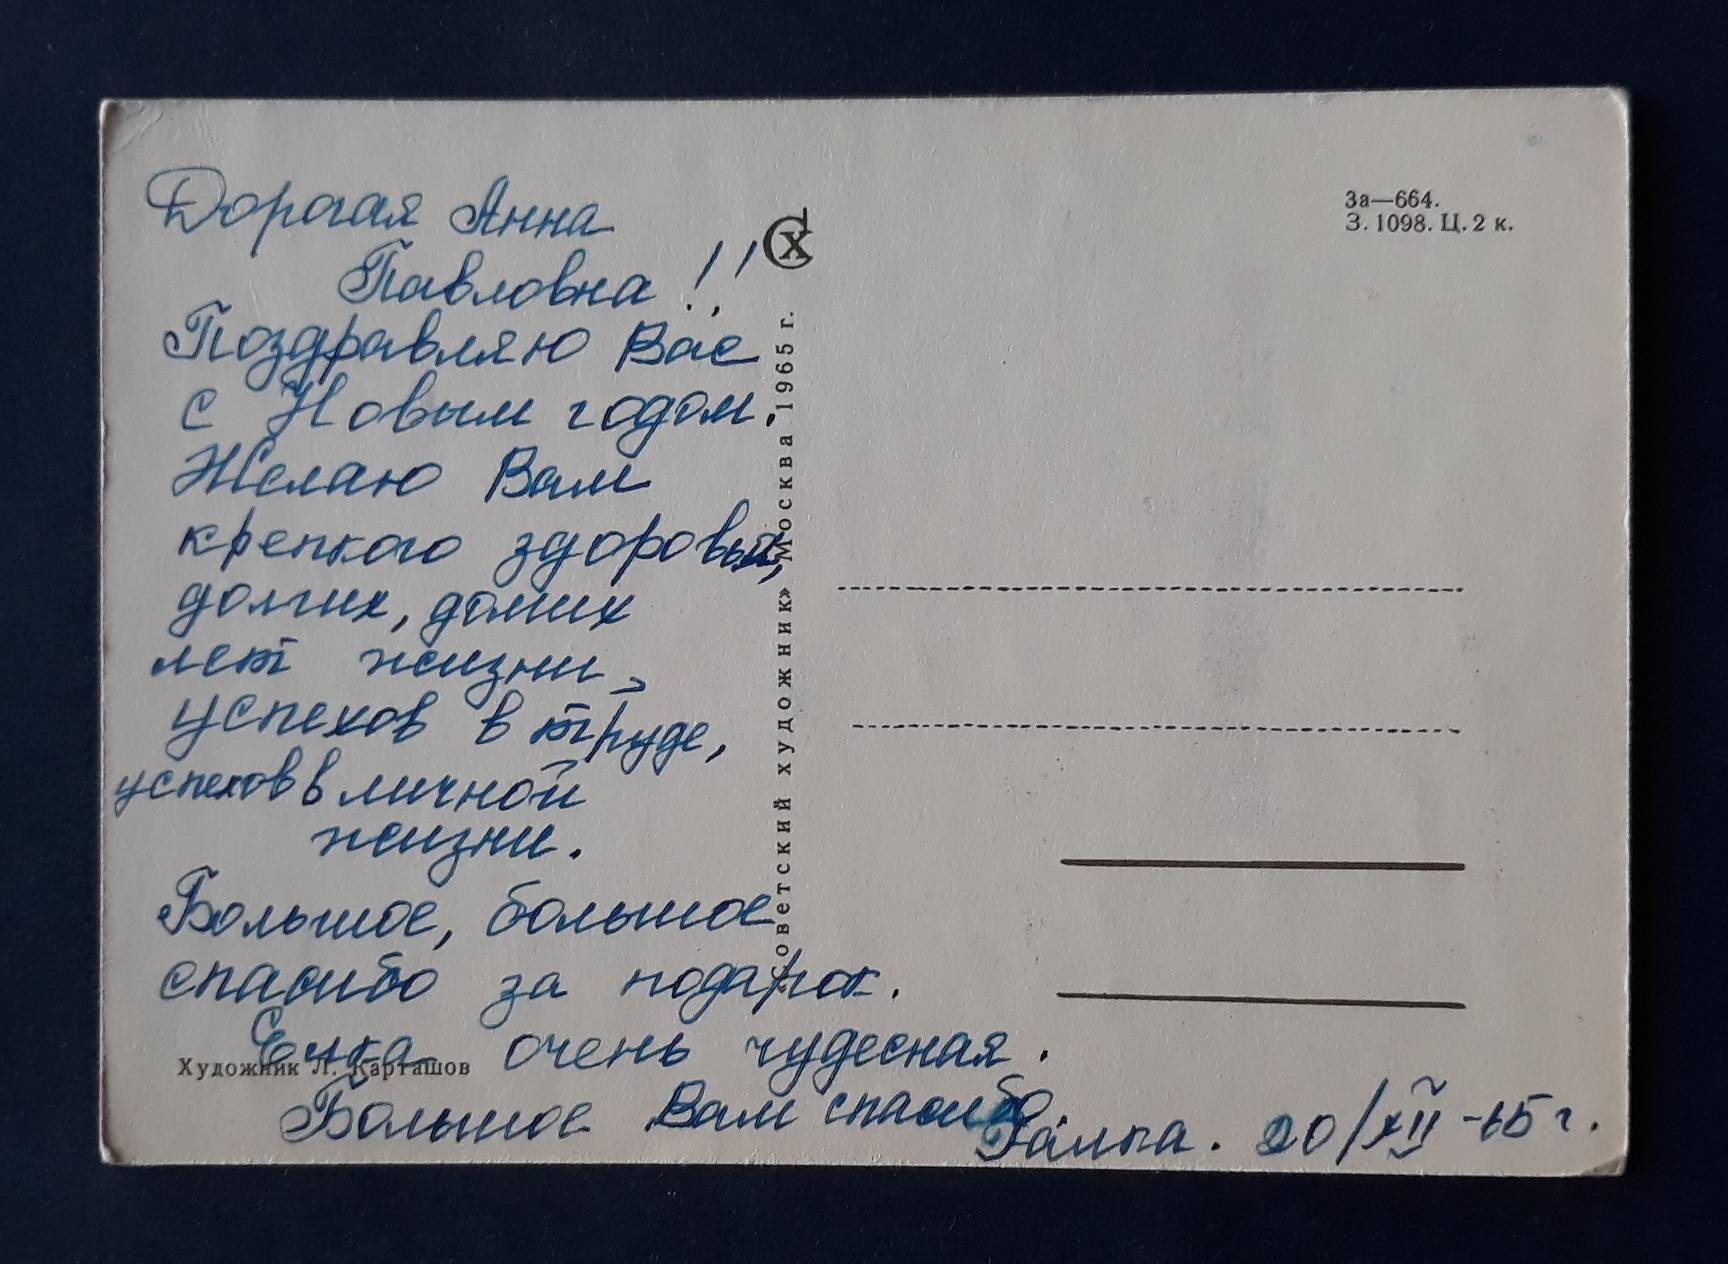 Дорогая Анна
Павловна!!
Поздравляю Вас
с Новым годом.
Желаю Вам
крепкого здоровья,
долгих, долгих
лет жизни,
успехов в труде,
успехов в личной
жизни.
Большое, большое
спасибо за подарок.
Елка очень чудесная.
Большое Вам спасибо.
20/XII-65 г.
Художник Л. Карташов
СХ
«Советский художник» Москва 1965 г.
За—664.
З. 1098. Ц. 2 к.